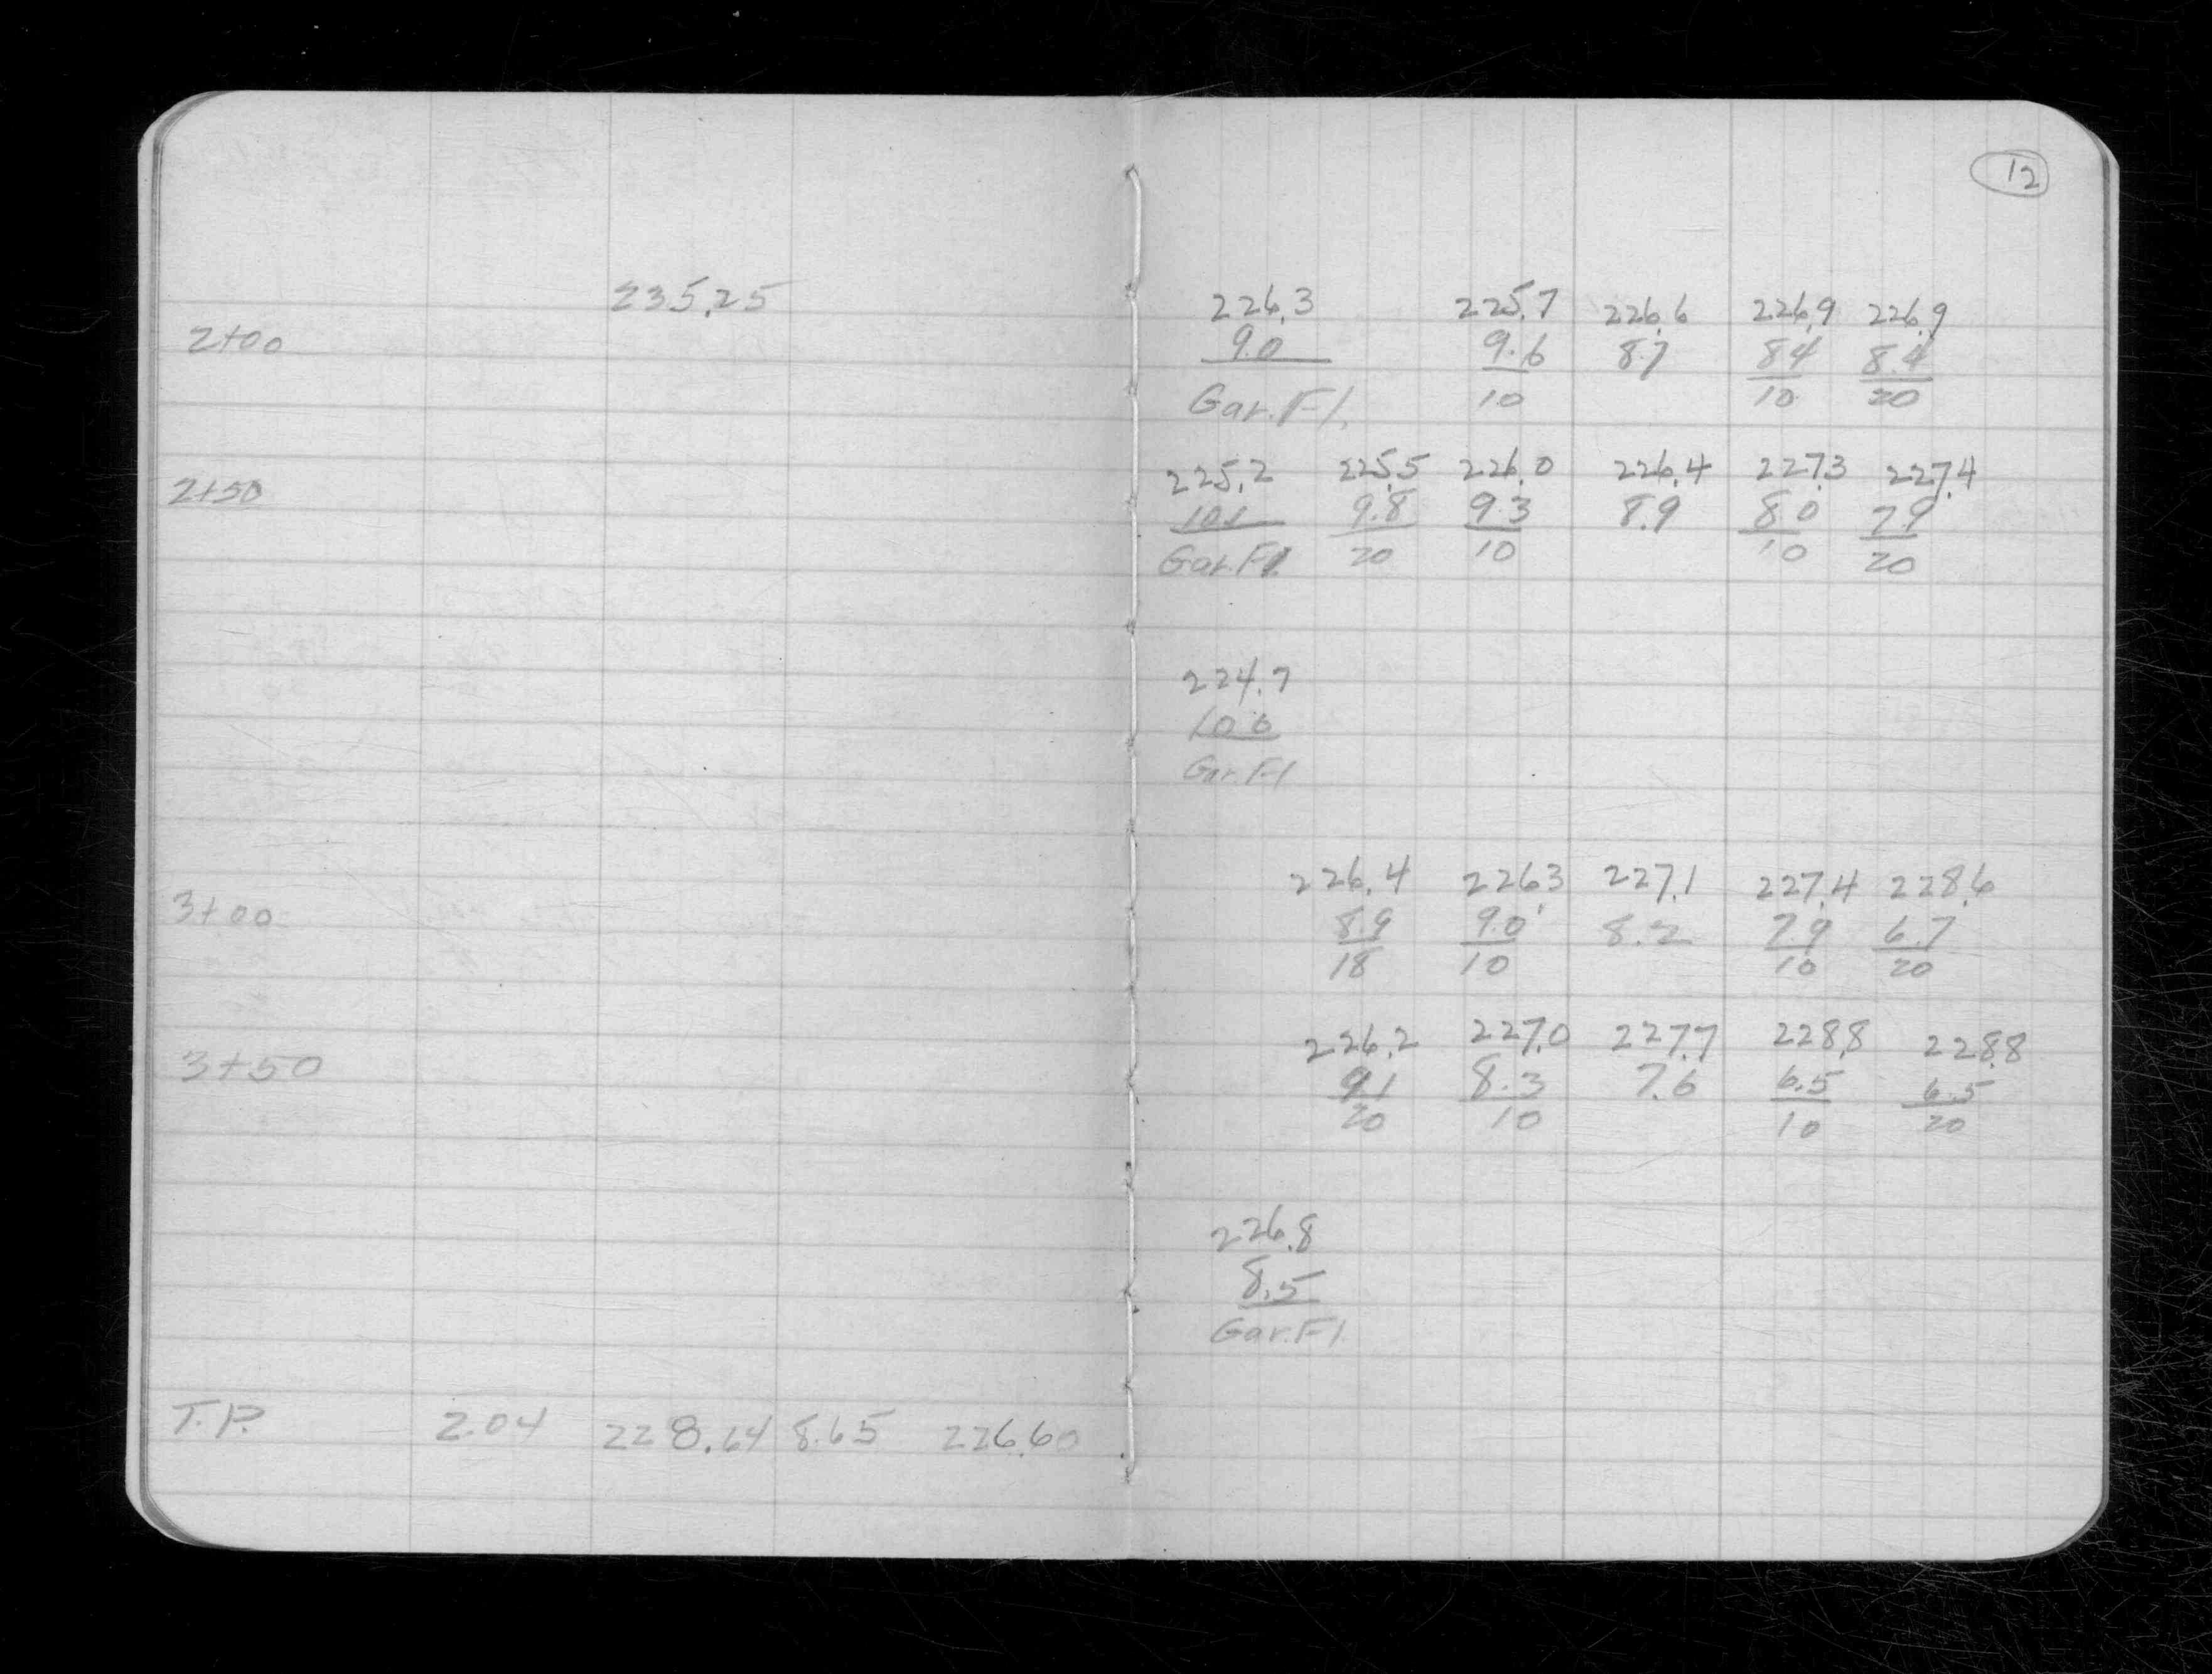 12
235.25
226.3 225.7 226.6 226.9 226.9
2+00 9.0 9.6 8.7 8.4 8.4
Gar. Fl. 10 10 20
225.2 225.5 226.0 226.4 227.3 227.4
2+50 10.1 9.8 9.3 8.9 8.0 7.9
Gar. Fl. 20 10 10 20
224.7
10.6
Gar. Fl
226.4 226.3 227.1 227.4 228.6
3+00 8.9 9.0 8.2 7.9 6.7
18 10 10 20
226.2 227.0 227.7 228.8 228.8
3+50 9.1 8.3 7.6 6.5 6.5
20 10 10 20
226.8
8.5
Gar. Fl.
T.P. 2.04 228.64 8.65 226.60